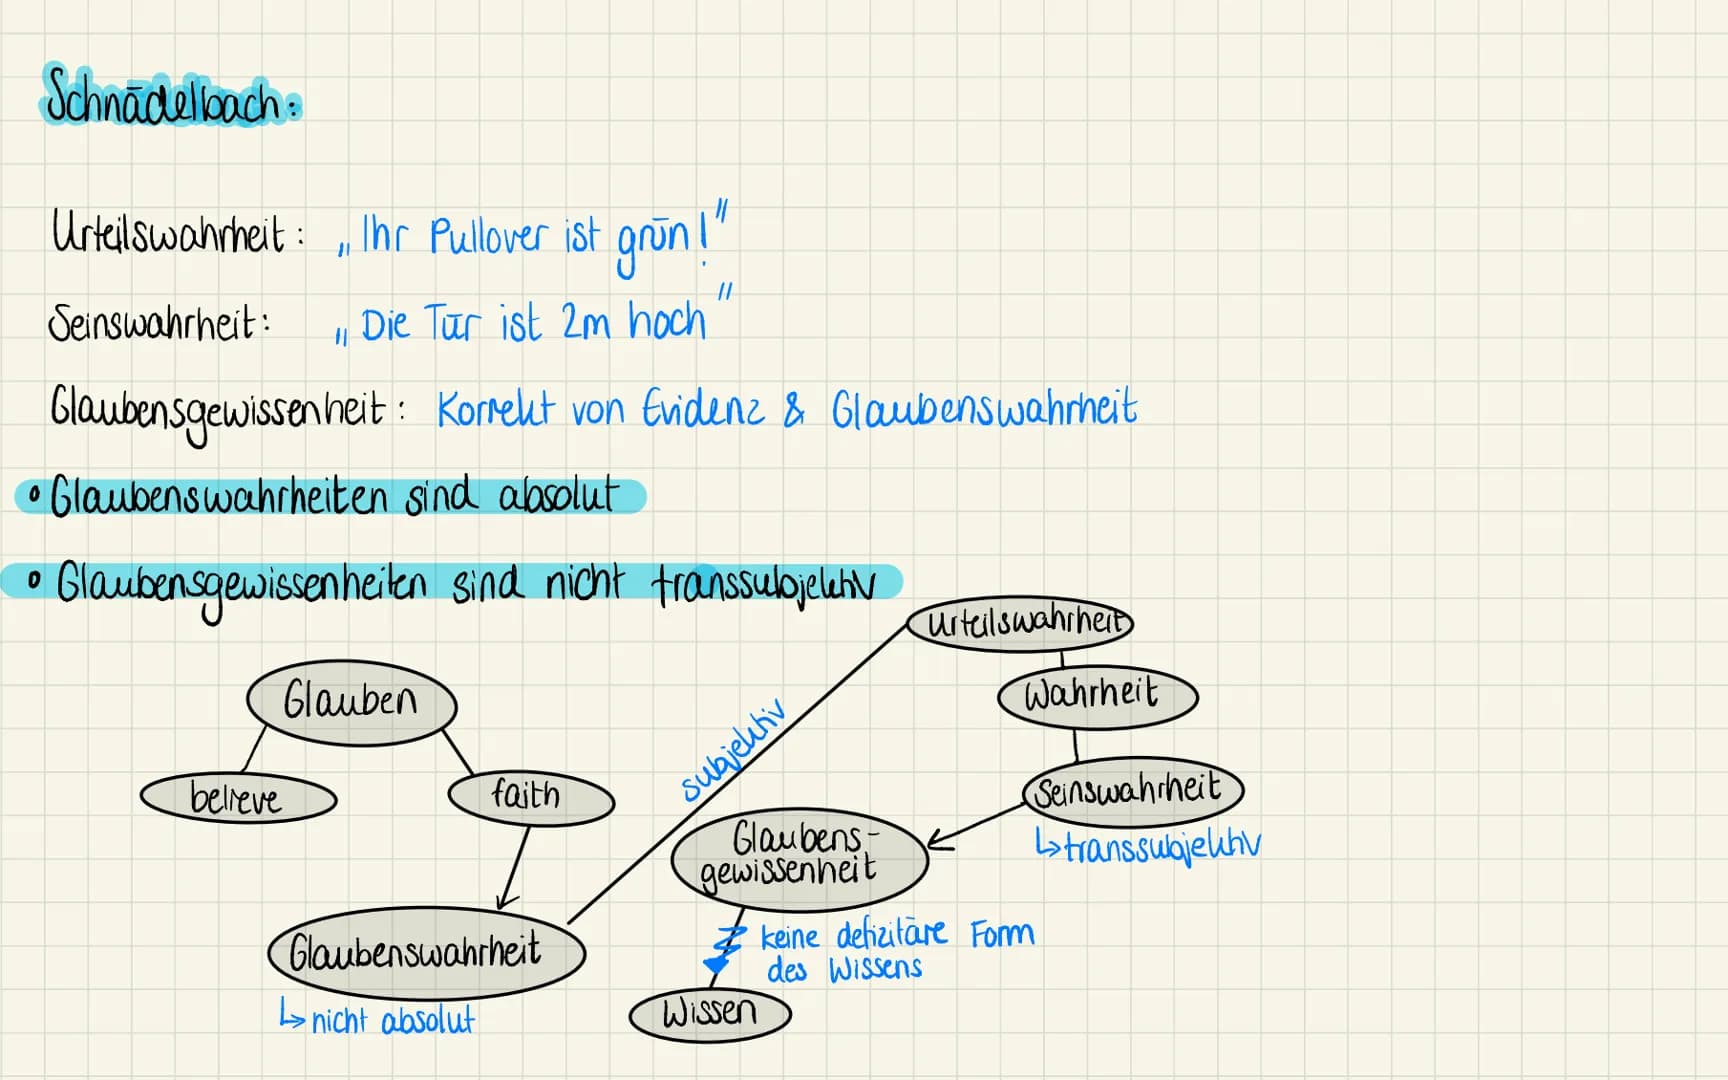 Schnādelbach:
Urteilswahrheit: „Ihr Pullover ist grūn!"
Seinswahrheit: „Die Tūr ist 2m hoch"
Glaubensgewissenheit: Korrekt von Evidenz & Glaubenswahrheit
• Glaubenswahrheiten sind absolut
• Glaubensgewissenheiten sind nicht transsubjektiv
Urteilswahrheit
Glauben
Wahrheit
subjektiv
believe
faith
Seinswahrheit
↳transsubjektiv
Glaubens-
gewissenheit
Glaubenswahrheit
↳nicht absolut
keine defizitāre Form
des Wissens
Wissen